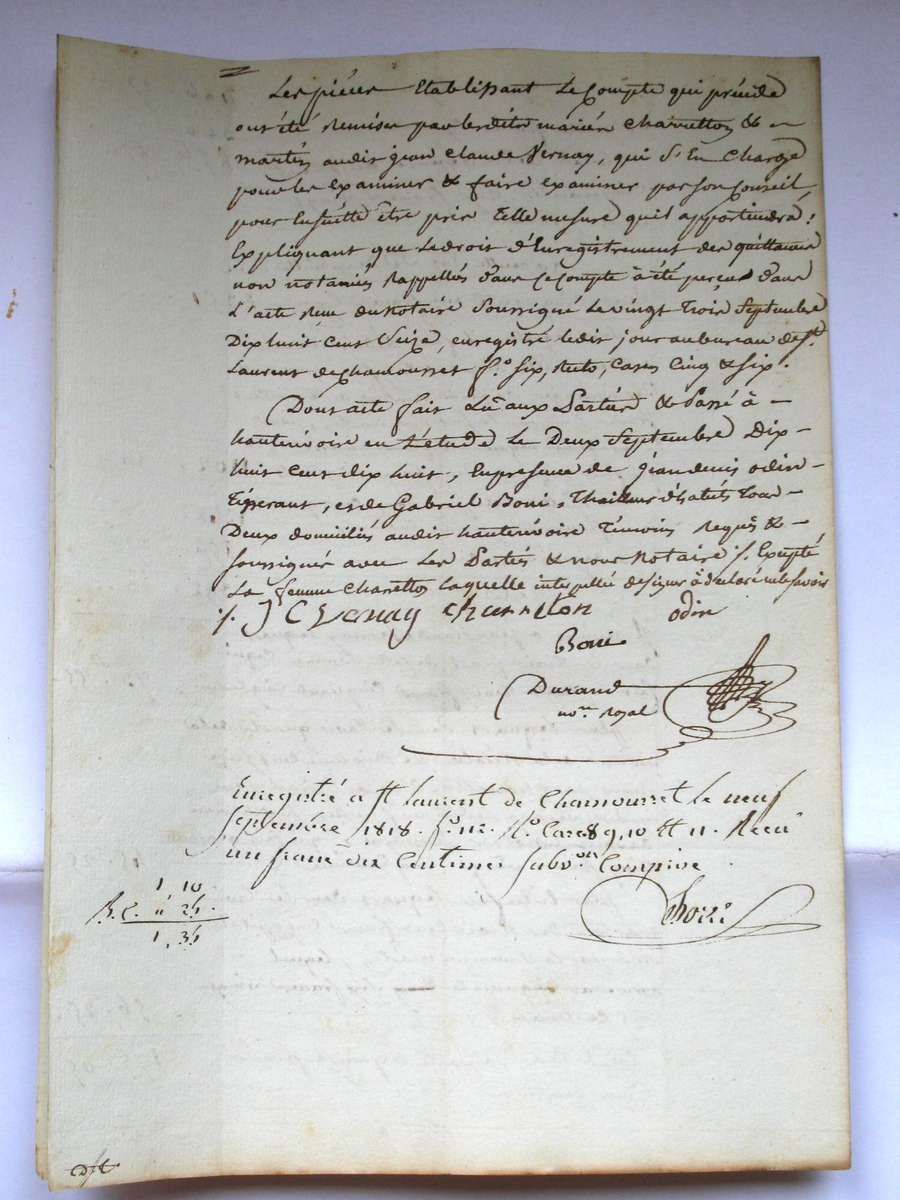 Les piéces Etablissant Le Compte qui précéde
ont été Remises par lesdits mariés Charretton & -
martin audit jean Claude Vernay, qui s'En Charge
pour les Examiner & faire examiner par son Conseil,
pour Ensuitte être pris telle mesure quil appartiendra;
Expliquant que Le droit d'Enregistrement des quittances
non notariés Rappellés dans ce Compte à été perçu dans
L'acte Recu du Notaire Soussigné Le vingt trois Septembre
Dix huit Cent Seize, enregistré ledit jour au bureau de St.
Laurent de chamousset f.o six, Recto, Cases Cinq & six.
Dont acte fait Lu aux Parties & Passé à -
hauterivoire en L'étude Le Deux Septembre Dix-
huit cent dix huit, En presence de jean denis odin -
Tisserant, et de Gabriel Boni, Thailleur d'habits tous -
Deux domiciliés audit hauterivoire Témoins Requis & -
soussignés avec Les Parties & nous Notaire /. Excepté
La femme Charetton laquelle interpellée de signer à déclaré ne le savoir
/. J C Vernay Charreton odin
Boni
Durand
nore. Royal
Enregistré a St Laurent de Chamousset le neuf
septembre 1818. fo. 112. Ro. Cases 8 9, 10 et 11. Recu
un franc dix Centimes subvon Comprise
1, 10
1, 35